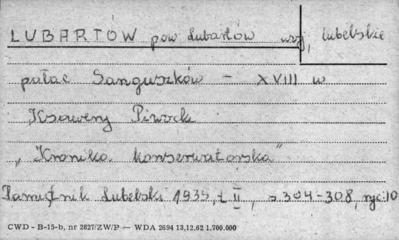 LUBARTÓW pow Lubartów woj, lubelskie
pałac Sanguszków - XVIII w
Ksawery Piwocki
„Kronika konserwatorska"
Pamiętnik Lubelski 1935, t II, s 304-308, ryc. 10
CWD - B-15-b, nr 2827/ZW/P — WDA 2694 13.12.62 1.700.000